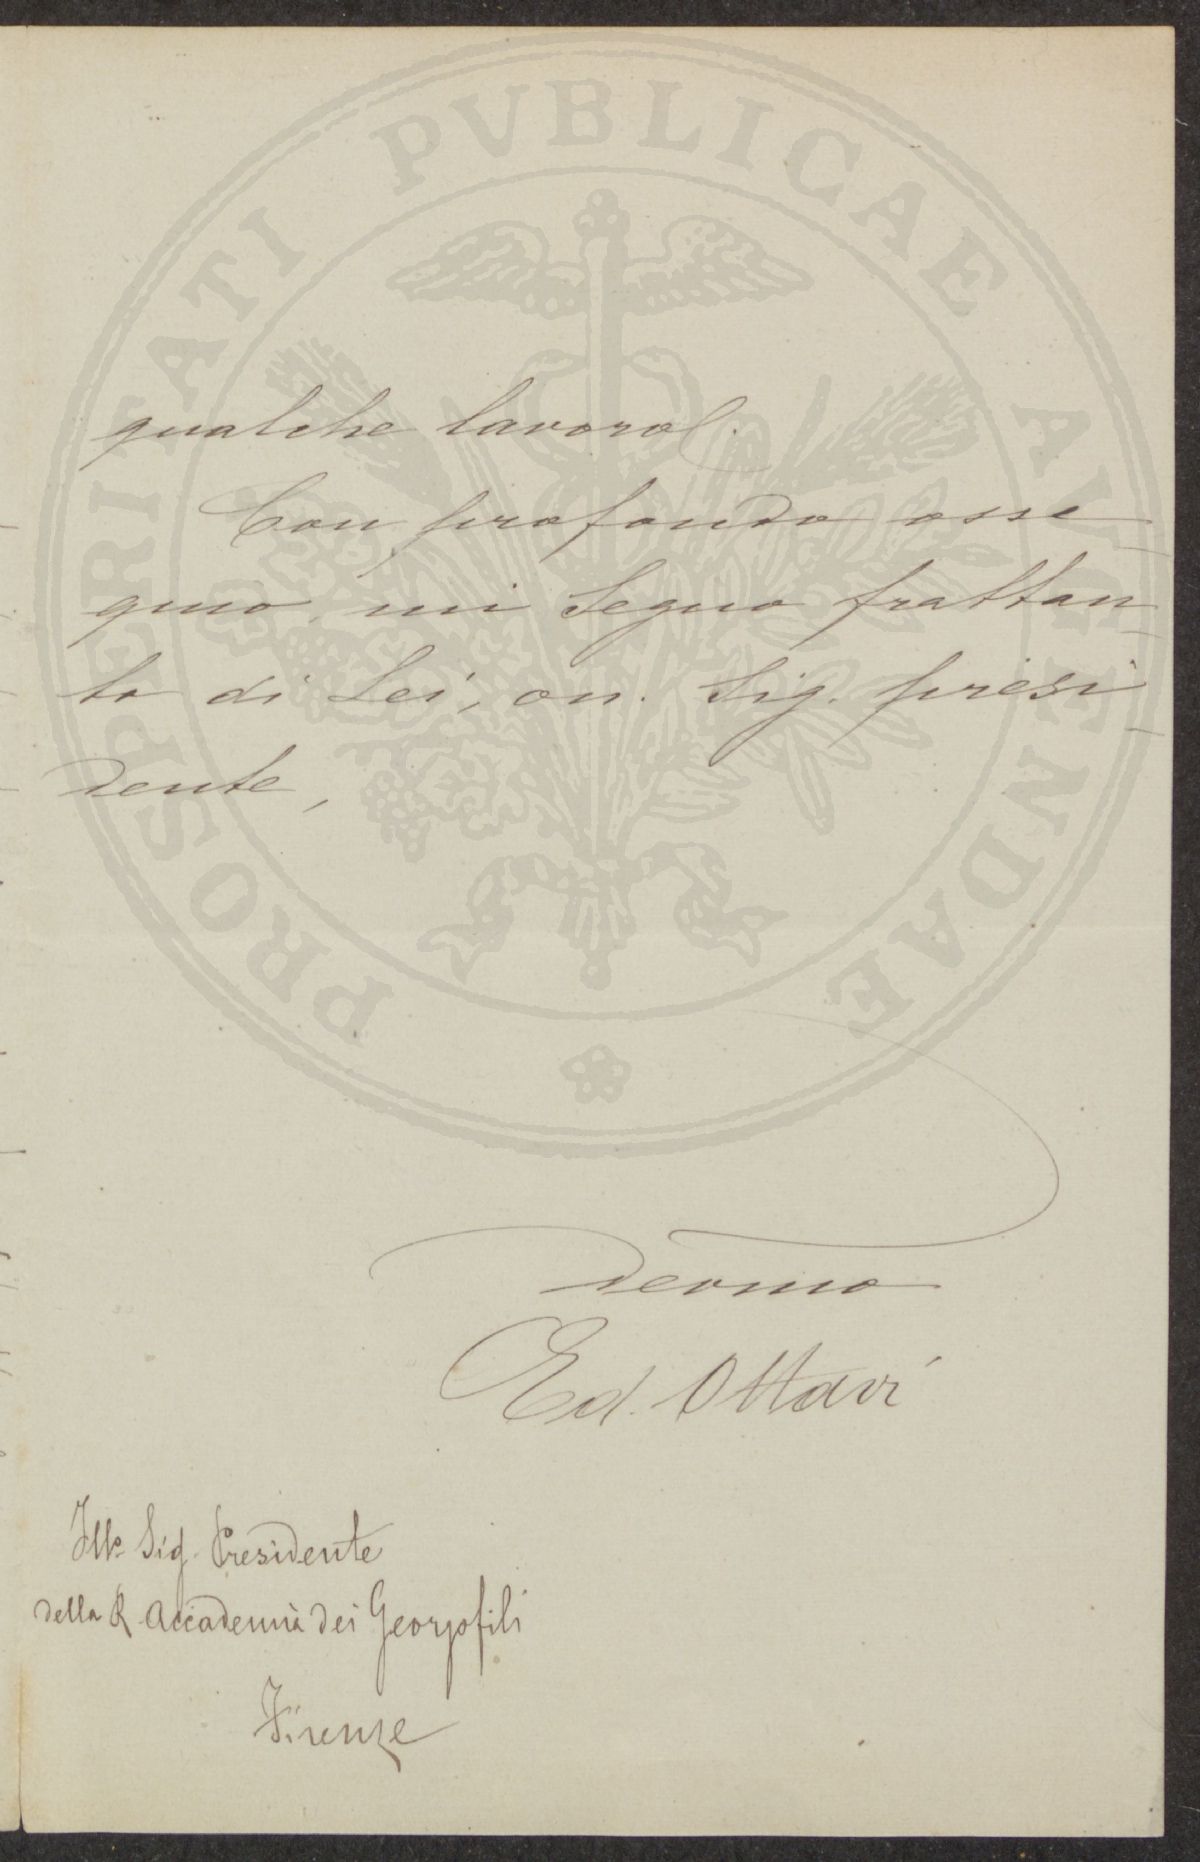 PROSPERITATI PUBLICAE AUGENDAE
qualche lavoro.
Con profondo osse
quio mi segno frattan
to di Lei, on. Sig. presi
dente,
Devmo
Ed. Ottavi
Illo Sig. Presidente
della R. Accademia dei Georgofili
Firenze